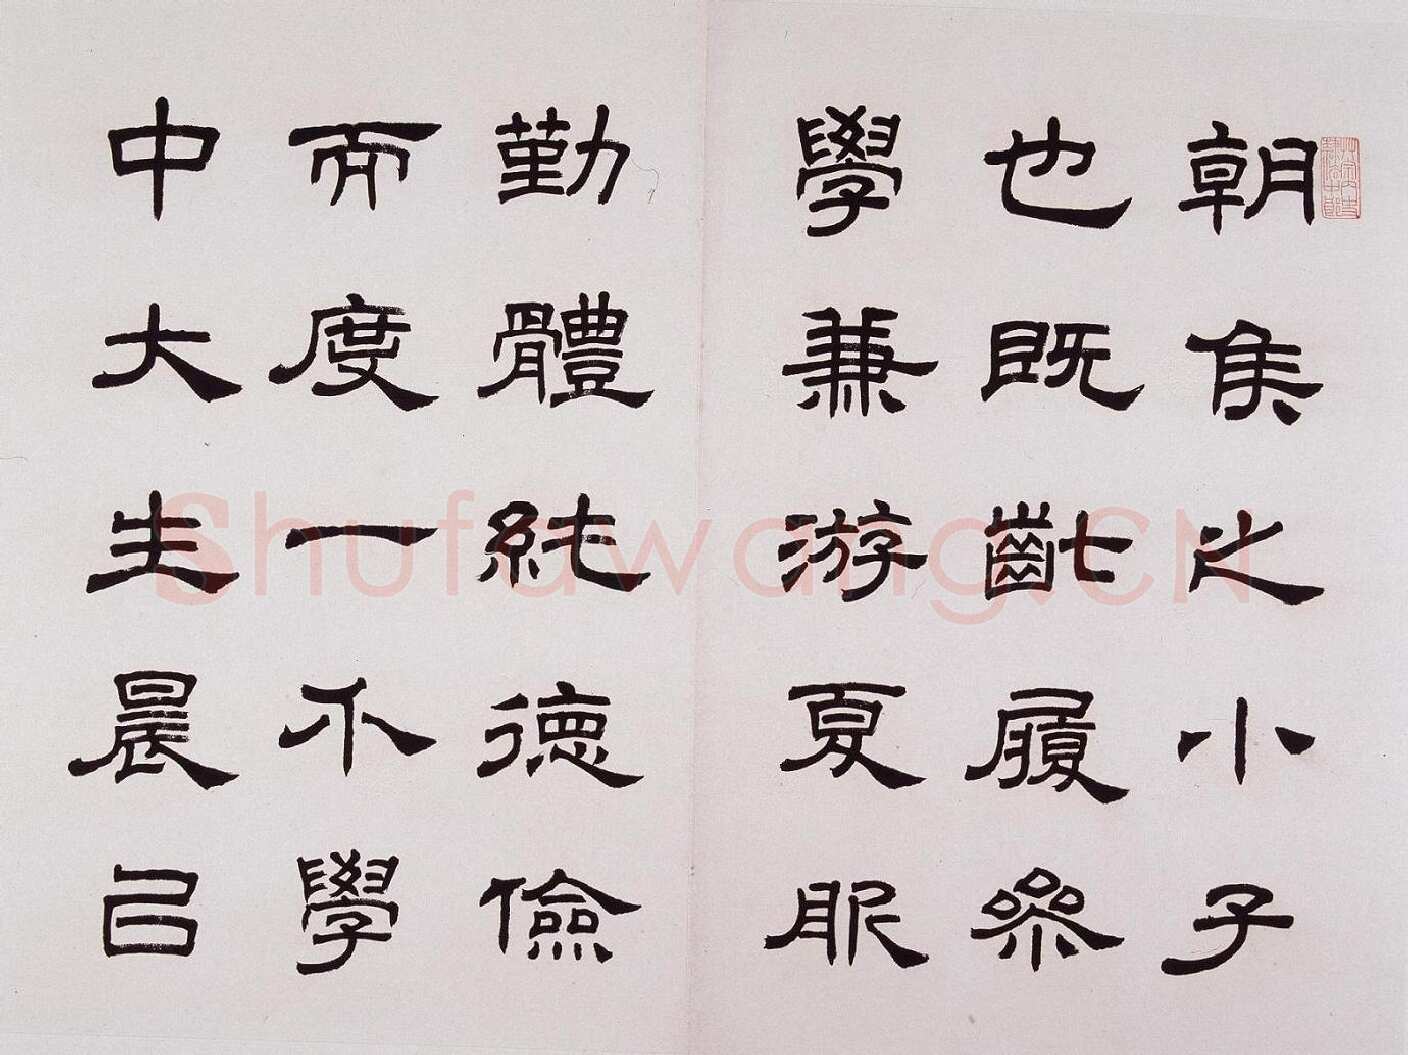 朝侯之小子
也既齔履爂
學兼游夏服
勤體純德儉
而度一不學
中大生晨已
Shufawang.CN